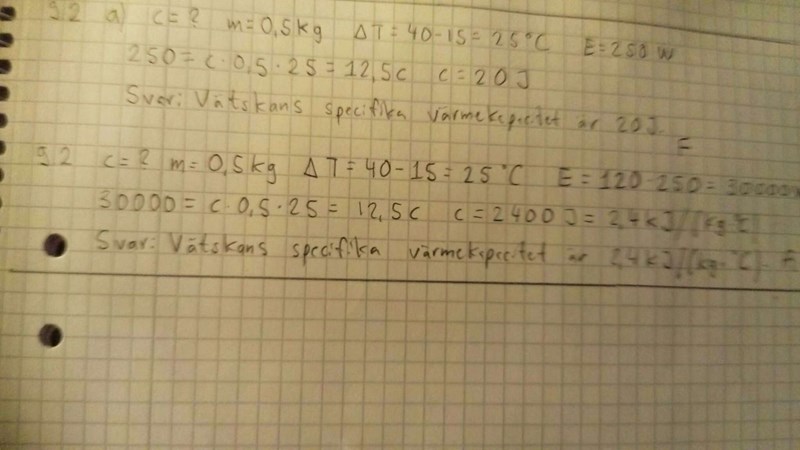 9.2 a) c = ? m = 0,5 kg ΔT = 40 - 15 = 25°C E = 250 W
250 = c · 0,5 · 25 = 12,5c c = 20 J
Svar: Vätskans specifika värmekapacitet är 20 J.
F
9.2 c = ? m = 0,5 kg ΔT = 40 - 15 = 25°C E = 120 · 250 = 30000
30000 = c · 0,5 · 25 = 12,5c c = 2400 J = 2,4 kJ/(kg·°C)
Svar: Vätskans specifika värmekapacitet är 2,4 kJ/(kg·°C). F